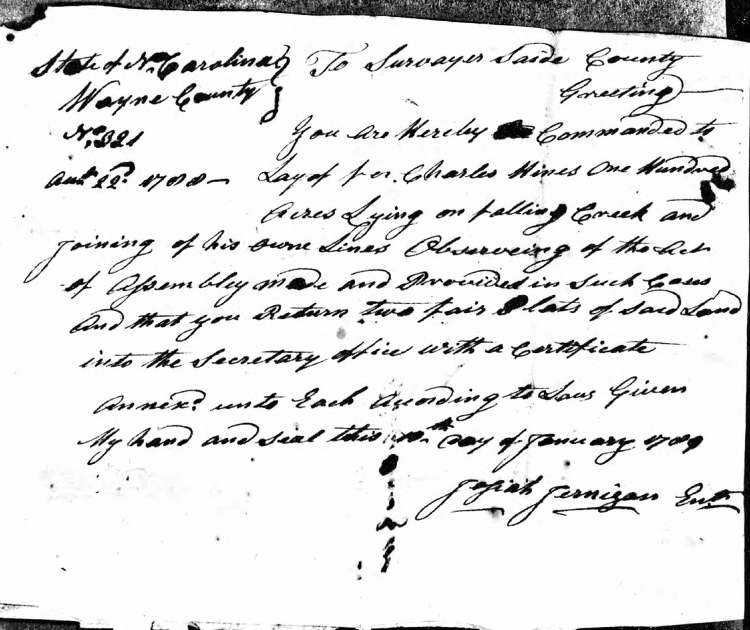 State of No. Carolina } To Survayer Saide County
Wayne County } Greeting
No. 321
Augt. 22d. 1788 — You are Hereby Commanded to
Lay of for Charles Hines One Hundred
Acres Lying on falling Creek and
Joining of his owne Lines Observeing of the Act
of Assembly made and Provided in Such Cases
And that you Return two fair Plats of Said Land
into the Secretary office with a Certificate
Annexd. unto Each According to Law Given
My hand and Seal this 10th Day of January 1789
Josiah Jernigan Entr.